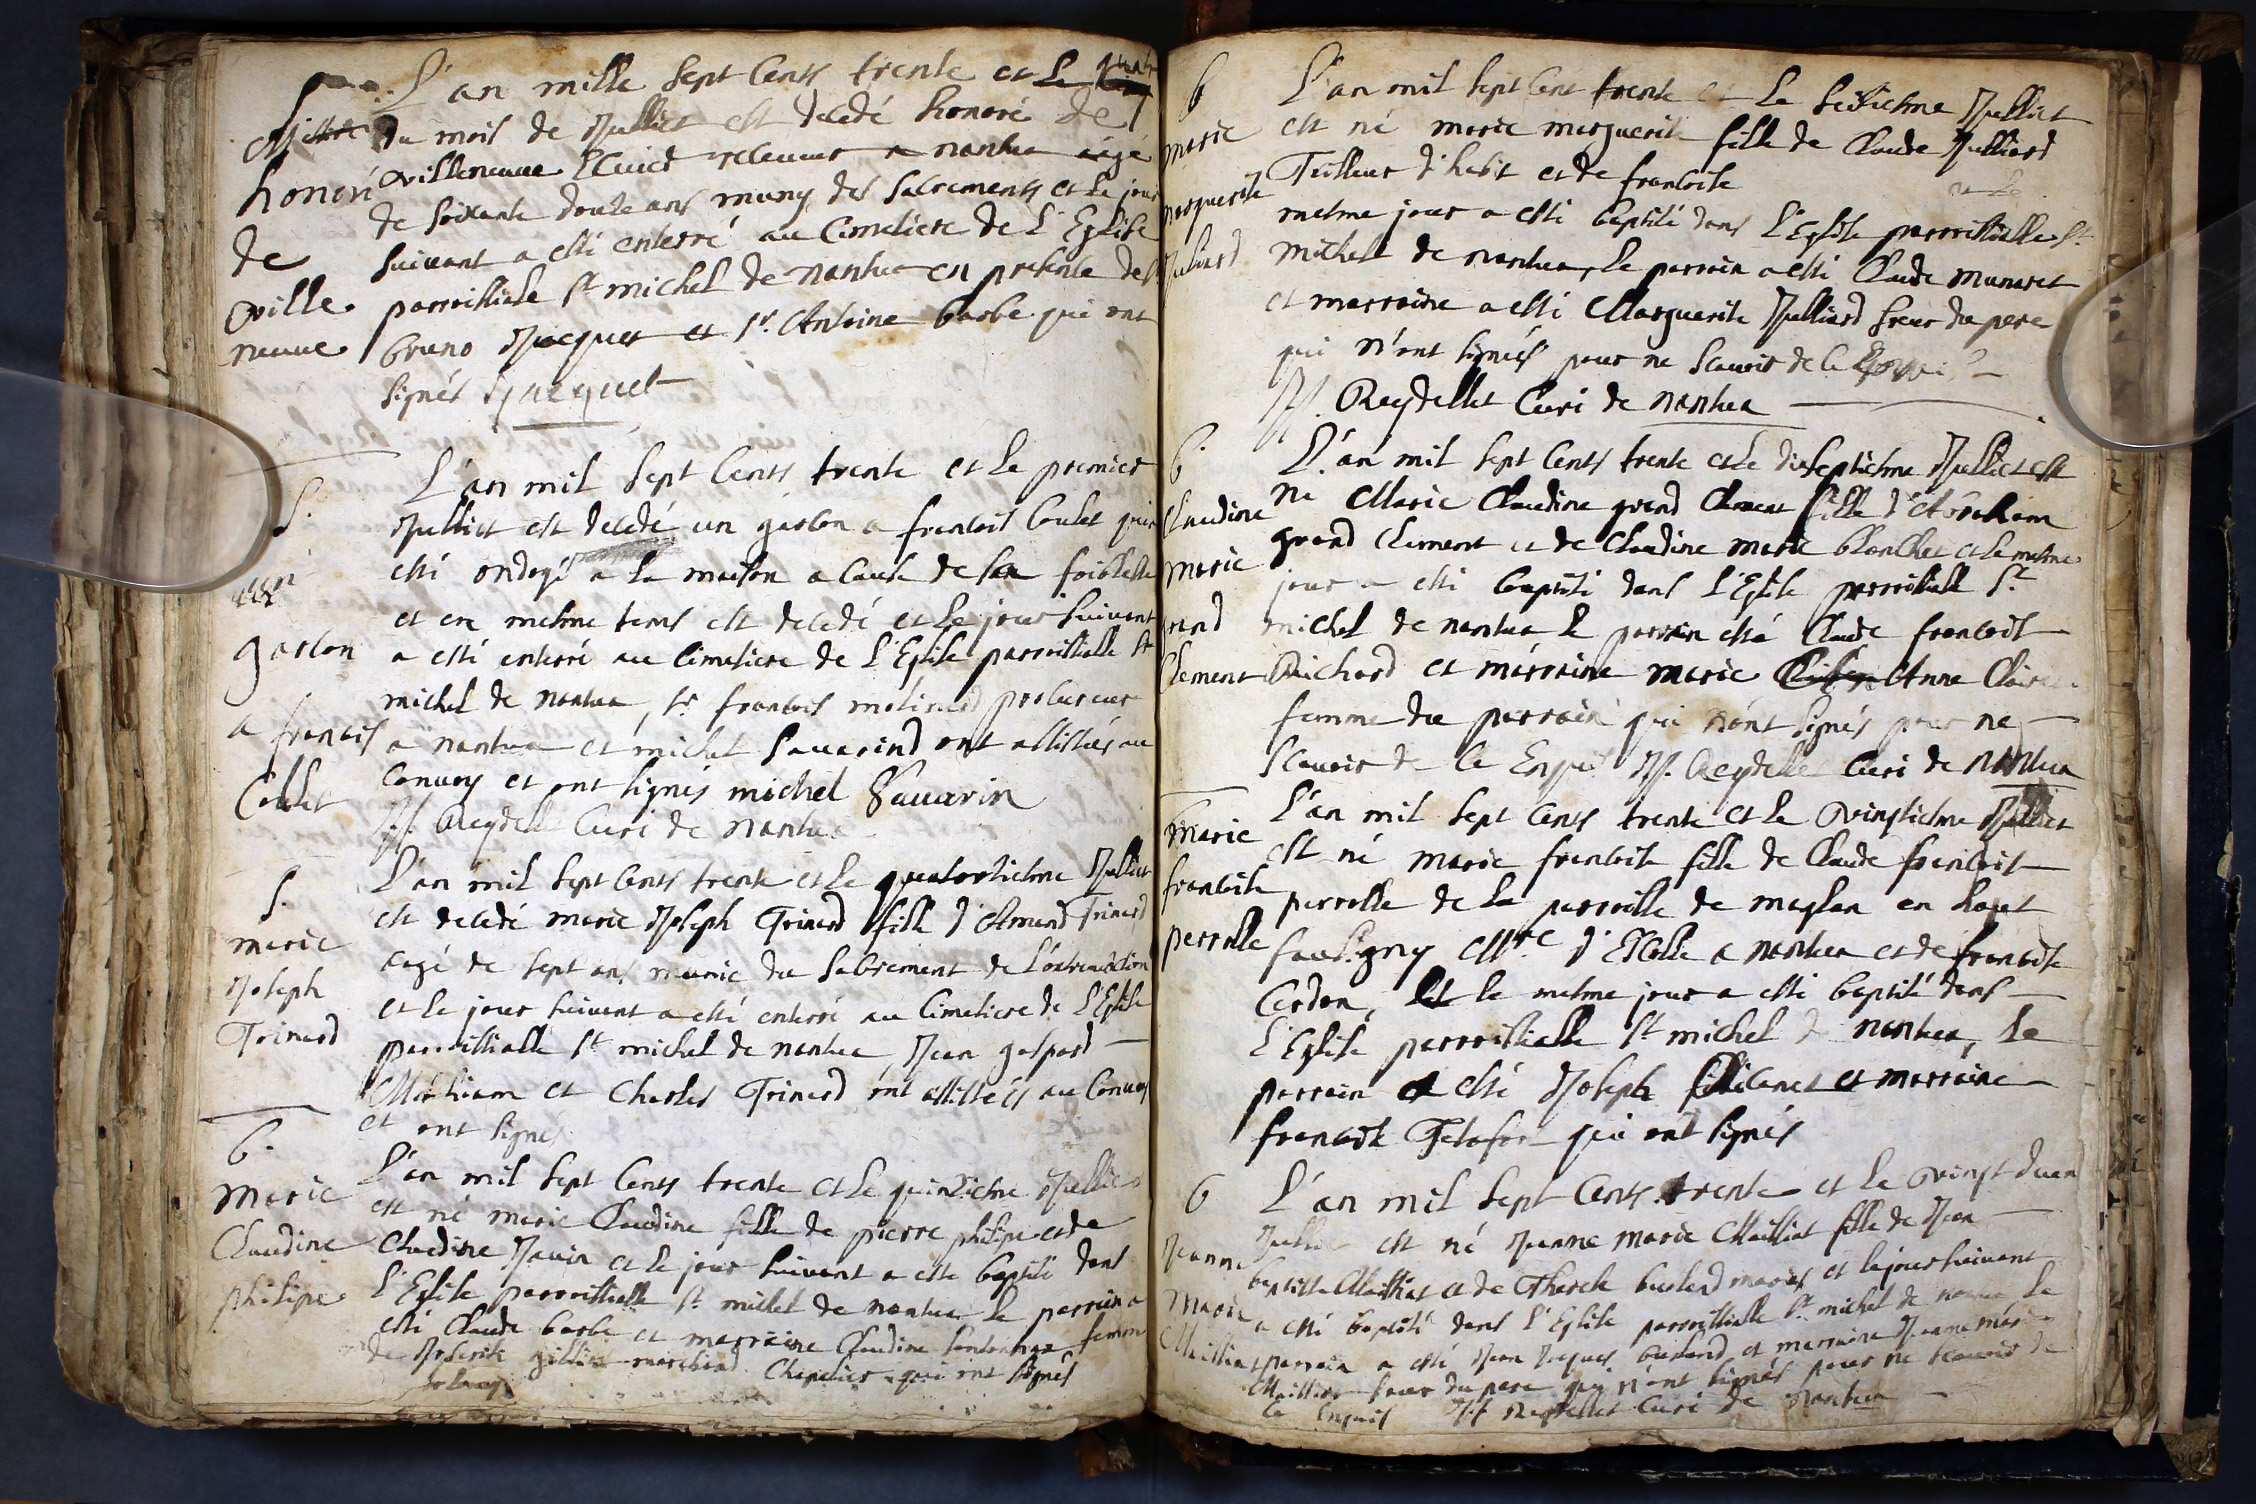 S.
Messire
honoré
de
ville
neuve
L'an mille sept cents trente et le
du mois de Juillet est decedé honoré de
villeneuve receveur a nantua aagé
de soixante douze ans muny des sacrements et le jour
suivant a esté enterré au Cimetiere de L'Eglise
parroissiale St michel de nantua en presence de
bruno Jacquet et Sr. Antoine barbe qui ont
signés Jacquet
S.
un
garson
a francois
Coulet
L'an mil sept Cents trente et le premier
Juilliet est decedé un garson a francois Coulet qui a
esté ondoyé a la maison a cause de sa foiblesse
et en mesme tems est decedé et le jour suivant
a esté enterré au Cimetiere de L'Eglise parroissialle St
michel de nantua, Sr francois molinard procureur
a nantua et michel Sauarind ont assistés au
Convoy et ont signés michel Sauarin
J. Reydellet Curé de nantua
S.
marie
Joseph
Trinard
L'an mil sept Cents trente et le quatorzieme Juilliet
est decedé marie Joseph Trinard fille d'Amand Trinard
aagé de sept ans munie du Sacrement de L'extremonction
et le jour suivant a esté enterré au Cimetiere de L'Eglise
parroissialle St michel de nantua Jean gaspard
et Charles Trinard ont assistéés au Convoy
et ont signés
b.
Marie
Claudine
philipe
L'an mil sept Cents trente et le quinzieme Juilliet
est né marie Claudine fille de pierre philipe et de
Claudine Janin et le jour suivant a esté baptisé dans
L'Eglise parroissialle St. michel de nantua le parrain a
esté Claude barbe et marraine Claudine femme
de marchand Chapelier qui ont signés
b
marie
marguerite
Julliard
L'an mil sept Cent trente et le seizieme Juilliet
est né marie marguerite fille de Claude Julliard
Tailleur d'habit et de francoise et le
mesme jour a esté baptisé dans L'Eglise parroissialle St.
Michel de nantua, le parrain a esté Claude munaret
et marraine a esté Marguerite Julliard soeur du pere
qui n'ont signés pour ne scauoir de ce
J. Reydellet Curé de nantua
b.
Claudine
marie
grand
Clement
L'an mil sept Cents trente et le dixseptieme Juilliet est
né Marie Claudine grand Clement fille d'Abraham
grand Clement et de Claudine marie blanchet et le mesme
jour a esté baptisé dans L'Eglise parroissialle St.
michel de nantua le parrain esté Claude francois
Richard et marraine marie Anne
femme du parrain qui n'ont signés pour ne
scauoir de ce Enquis J. Reydellet Curé de nantua
b
marie
francoise
perrolle
L'an mil sept Cents trente et le vingtieme Juilliet
est né marie francoise fille de Claude francois
perrolle de la parroisse de maglan en haut
fausigny Mtre d'Escolle a nantua et de francoise
Cerdon, et le mesme jour a esté baptisé dans
L'Eglise parroissialle St michel de nantua, Le
parrain a esté Joseph et marraine
francoise qui ont signés
b
Jeanne
Marie
Mailliat
L'an mil sept Cents trente et le vingt deux
Juilliet est né Jeanne marie Mailliat fille de Jean
baptiste Mailliat et de Therese mariés et le jour suivant
a esté baptisé dans L'Eglise parroissialle St. michel de nantua Le
parrain a esté Jean Jacques et marraine Jeanne marie
Mailliat soeur du pere qui n'ont signés pour ne scauoir de
ce Enquis J. Reydellet Curé de nantua